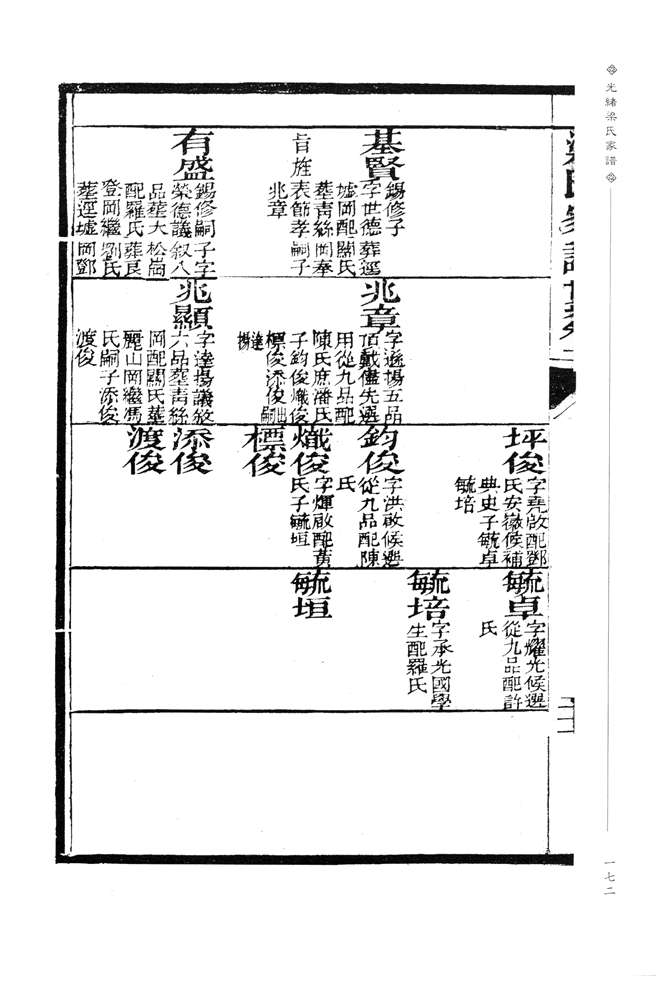 光緒梁氏家譜
一七二
梁氏家譜世系卷二
基賢
錫修子
字世德葬逕
墟岡配關氏
葬靑絲岡奉
旨旌表節孝嗣子
兆章
有盛
錫修嗣子字
榮德議叙八
品葬大松崗
配羅氏葬良
登岡繼劉氏
葬逕墟岡鄧
兆章
字遜揚五品
頂戴儘先選
用從九品配
陳氏庶潘氏
子鈞俊熾俊
標俊添俊出嗣
達揚
兆顯
字達揚議敘
六品葬靑絲
岡配關氏葬
麗山岡繼馮
氏嗣子添俊
渡俊
坪俊
字堯啟配鄧
氏安徽候補
典史子毓卓
毓培
鈞俊
字洪啟候選
從九品配陳
氏
熾俊
字輝啟配黃
氏子毓垣
標俊
添俊
渡俊
毓卓
字耀光候選
從九品配許
氏
毓培
字承光國學
生配羅氏
毓垣